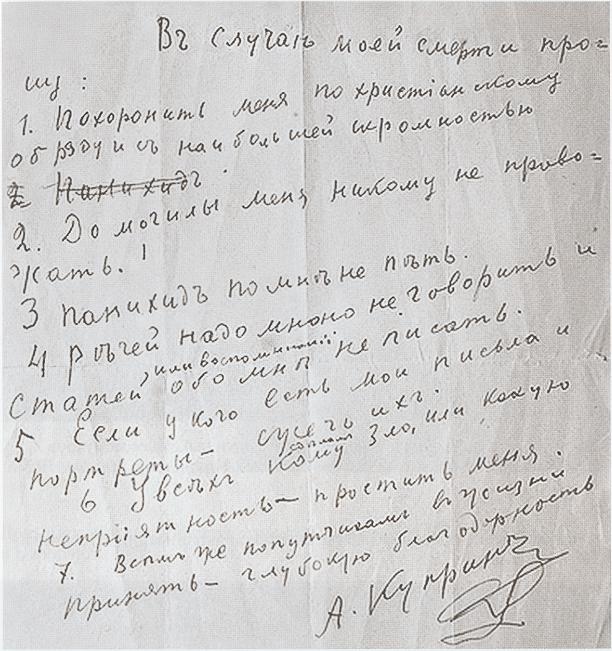 Въ случаѣ моей смерти про=
шу:
1. Похоронить меня по христіанскому
обряду и съ наибольшей скромностью
2 Панихидъ.
2. До могилы меня никому не прово=
жать.
3 панихидъ по мнѣ не пѣть.
4 Рѣчей надо мною не говорить и
, или воспоминаній
статей обо мнѣ не писать.
5 Если у кого есть мои письма и
портреты — сжечь ихъ.
6 У всѣхъ кому сдѣлалъ зло, или какую
непріятность — простить меня.
7. Всѣмъ же попутчикамъ въ жизни
принять — глубокую благодарность
А. Купринъ